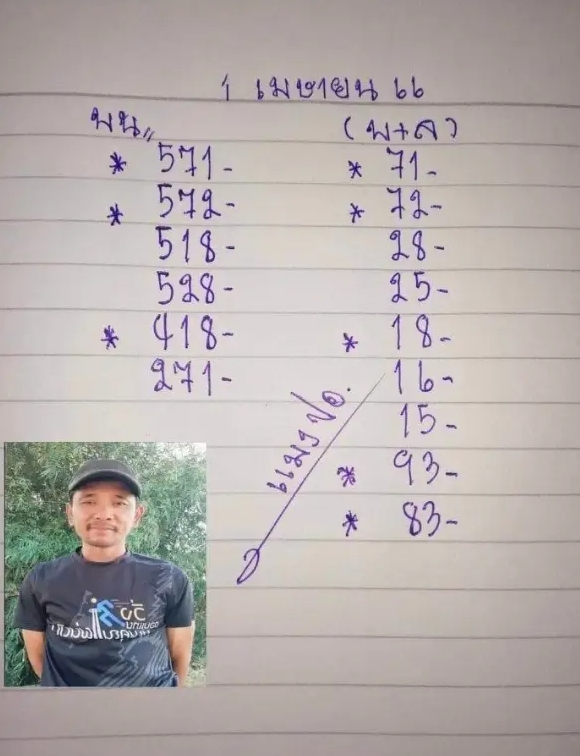 1 เมษายน 66
บน,, (บ+ล)
* 571- * 71-
* 572- * 72-
518- 28-
528- 25-
* 418- * 18-
271- 16-
15-
* 93-
* 83-
วิ่ง